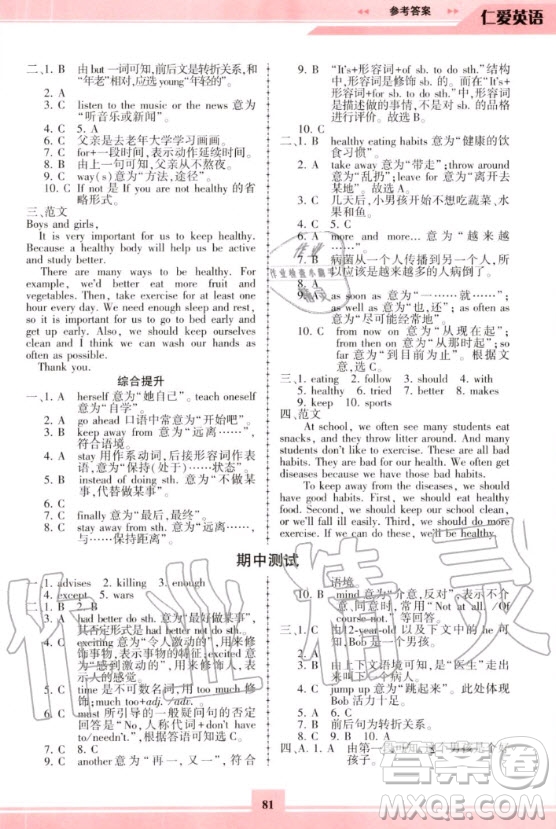 参考答案
仁爱英语
二、1. B  由but一词可知，前后文是转折关系，和
“年老”相对，应选young“年轻的”。
2. A
3. C  listen to the music or the news 意为
“听音乐或新闻”。
4. C  5. A
6. C  父亲是去老年大学学习画画。
7. C  for+一段时间，表示动作延续时间。
8. B  由上一句可知，父亲从不熬夜。
9. C  way(s)意为“方法，途径”。
10. C  If not 是 If you are not healthy 的省
略形式。
三、范文
Boys and girls,
It is very important for us to keep healthy.
Because a healthy body will help us be active
and study better.
There are many ways to keep healthy. For
example, we'd better eat more fruit and
vegetables. Then, take exercise for at least one
hour every day. We need enough sleep and rest,
so it is important for us to go to bed early and
get up early. Also, we should keep ourselves
clean and I think we can wash our hands as
often as possible.
Thank you.
综合提升
一、1. A  herself 意为“她自己”。teach oneself
意为“自学”。
2. A  go ahead 口语中常意为“开始吧”。
3. B  keep away from sth. 意为“远离……”，
符合语境。
4. A  stay 用作系动词，后接形容词作表语，
意为“保持(处于)……状态”。
5. B  instead of doing sth. 意为“不做某
事，代替做某事”。
6. C
7. C  finally 意为“最后，最终”。
8. C  stay away from sth. 意为“远离……，
与……保持距离”。
9. B  “It's+形容词+of sb. to do sth.”结构
中，形容词是修饰 sb. 的；“It's+形容
词+for sb. to do sth.”的形容词是修饰
该做的事情的，不是对 sb. 的品格
进行评价。故选 B。
10. C
二、1. B  healthy eating habits 意为“健康的饮
食习惯”。
2. A  take away 意为“带走”；throw around
意为“乱扔”；leave out 意为“离开去
某地”。故选 A。
3. C
4. C
5. C  几天后，小男孩开始不想吃蔬菜、水
果和鱼。
6. A  more and more... 意为“越来越
……”。
7. B  病菌从一个人传播到另一个人，所
以应该是越来越多的人病倒了。
8. C
9. A  as soon as 意为“一……就……”；
as well as 意为“也，还”；as often as
意为“尽可能经常地”。
10. C  from now on 意为“从现在起”；
from then on 意为“从那时起”；so
far 意为“到目前为止”。根据文
意，选 C。
三、1. eating  2. follow  3. should  4. with
5. healthy  6. tried  7. better  8. makes
9. keep  10. sports
四、范文
At school, we often see many students eat
snacks, and they throw litter around. Also,
many students don't do exercise. These are all bad
habits. They are bad for our health. We often get
diseases because we have those bad habits.
To keep away from diseases, we should
have good habits. First, we should eat healthy
food. Secondly, we should keep our school clean,
or we may get ill quickly. Third, we should do more
exercise. If we do these, we will be healthy.
期中测试
一、1. advises  2. killing  3. enough
4. except  5. wars
二、1. B  2. B
3. A  had better do sth. 意为“最好做某事”，
其否定形式是 had better not do sth.。
4. C  exciting 意为“令人激动的”，用来修
饰事物，表示事物的特征；excited 意
为“感到激动的”，用来修饰人，表
示人的感觉。
5. C  time 是不可数名词，用 too much
修饰。
6. C  must 所引导的一般疑问句的否定
回答是“No, 人称代词+don't have
to/needn't.”。根据答语可知，选 C。
7. C  another 意为“再一，又一”，符合
语境。
10. B  mind 意为“介意，反对”，表示不介
意、同意时，常用“Not at all. /Of
course not.”等回答。
三、1. C  由12-year-old 以及下文中的 he 可
知，Bob 是一个男孩。
2. A
3. B  由上下文语境可知，是“医生”走出
4. C  jump up 意为“跳起来”。此处体现
Bob 活力十足。
5. B  前后句为转折关系。
四、A. 1. A
孩子。
81
作业精灵
答案圈
MXQE.COM